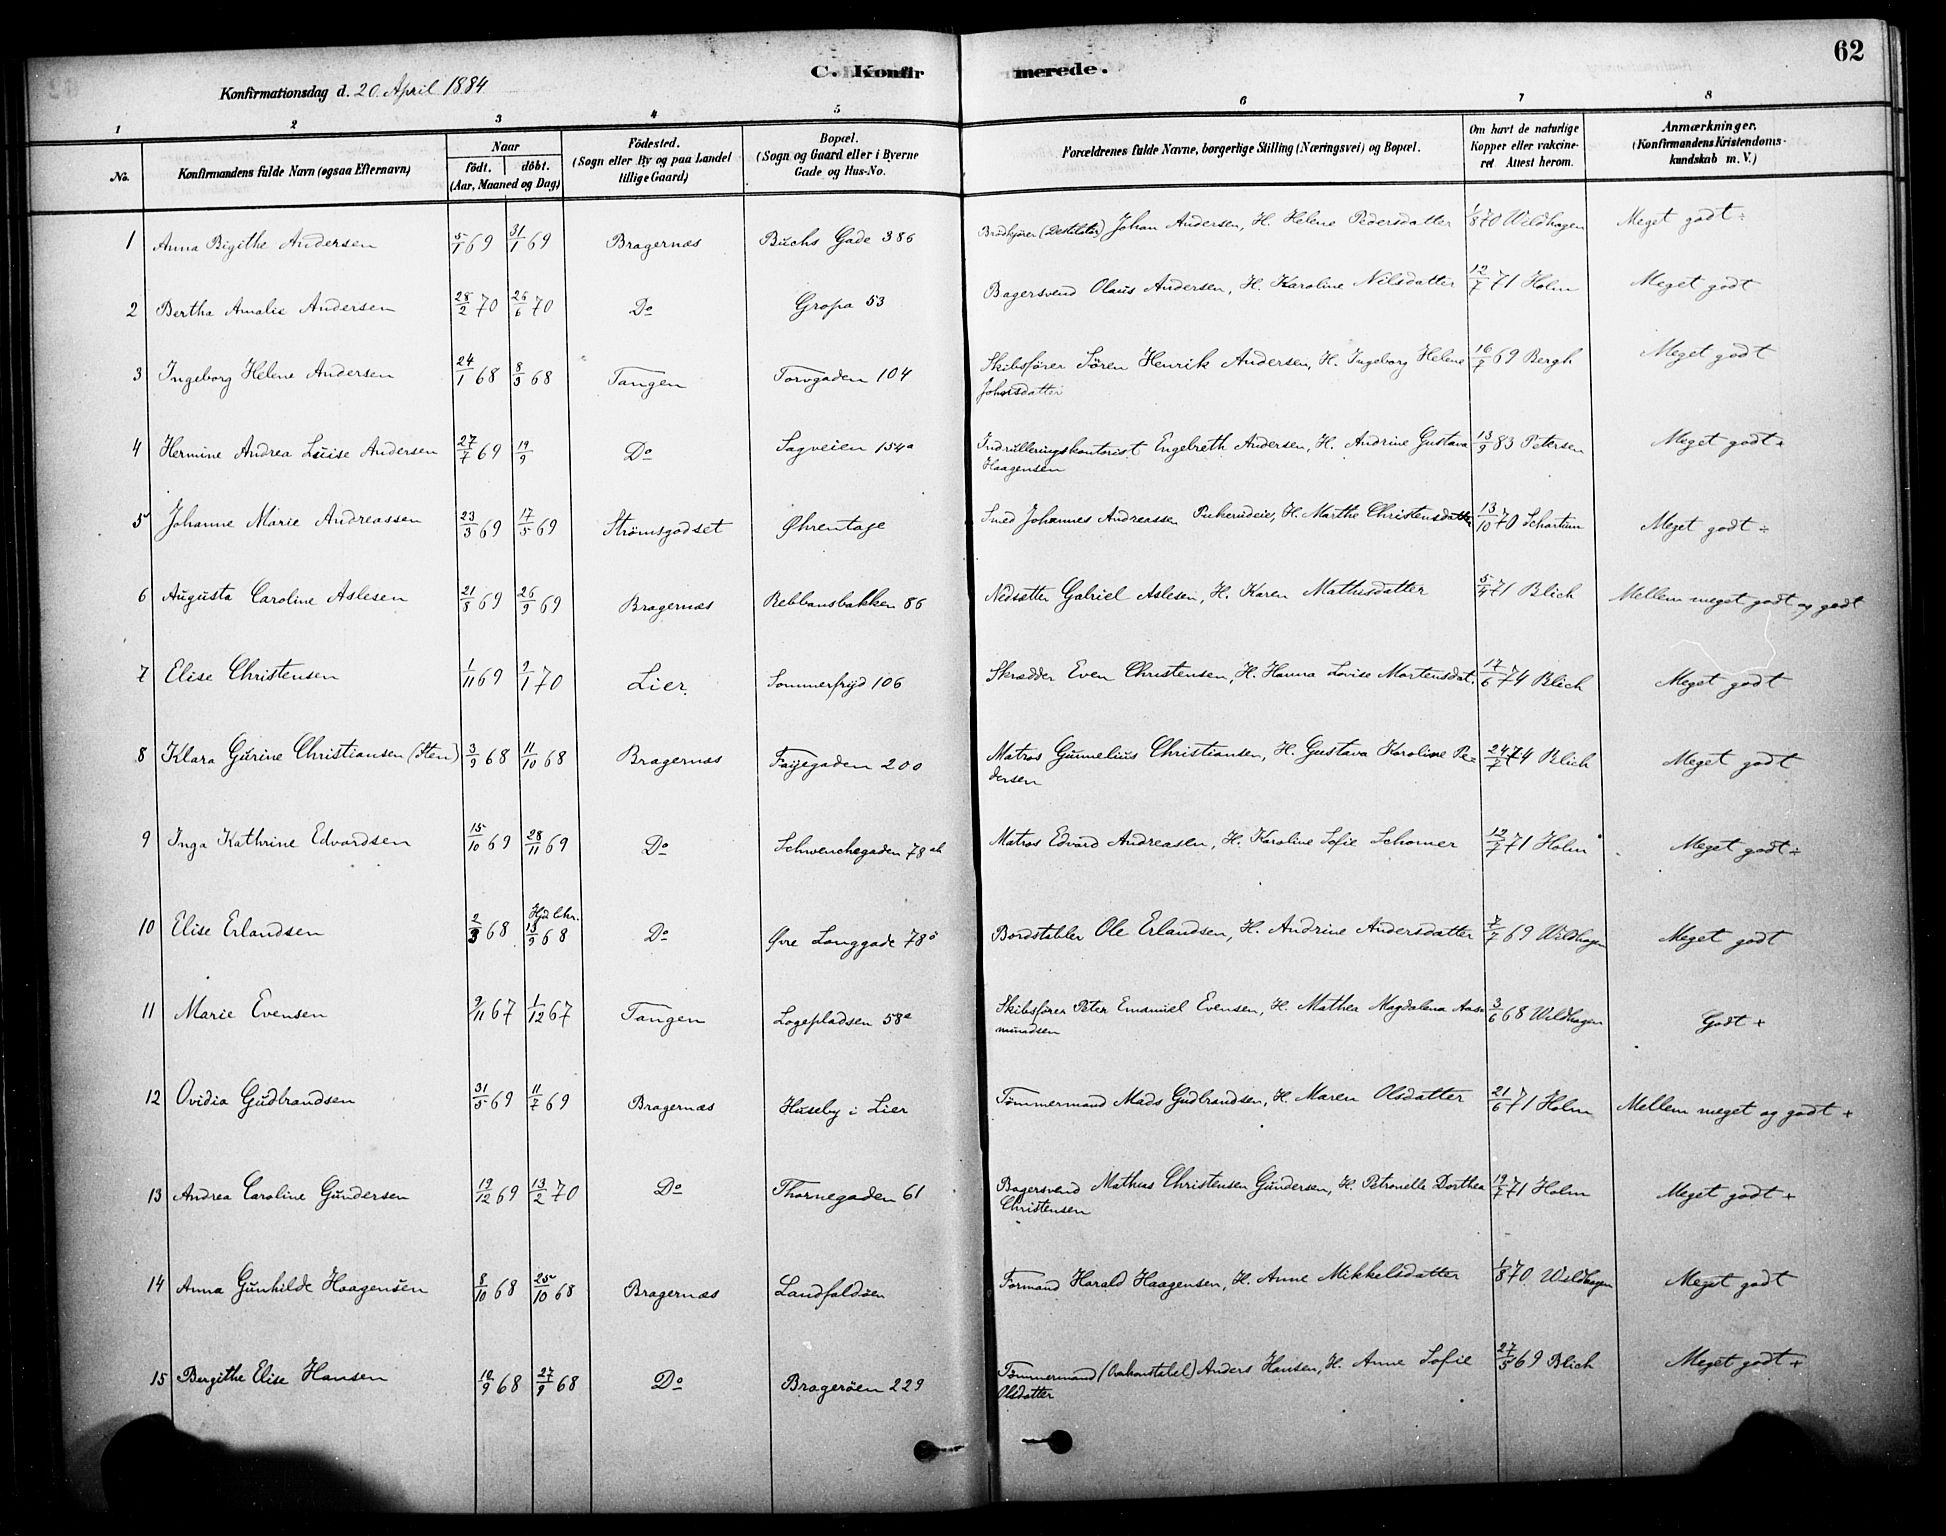 62
C. Konfirmerede.
Konfirmationsdag d. 20. April 1884
1 2 3 4 5 6 7 8
No. Konfirmandens fulde Navn (ogsaa Efternavn) Naar födt. döbt. (Aar, Maaned og Dag) Födested. (Sogn eller By og paa Landet tillige Gaard) Bopæl. (Sogn og Gaard eller i Byerne Gade og Hus-No. Forældrenes fulde Navne, borgerlige Stilling (Næringsvei) og Bopæl. Om havt de naturlige Kopper eller vakcineret Attest herom. Anmærkninger. (Konfirmandens Kristendomskundskab m. V.)
1 Anna Bigithe Andersen 5/1 69 31/1 69 Bragernæs Buchs Gade 386 Brödkjører (Destilatör) Johan Andersen, H. Helene Pedersdatter 1/8 70 Wildhagen Meget godt ÷
2 Bertha Amalie Andersen 28/2 70 26/6 70 Do Gropa 53 Bagersvend Olaus Andersen, H. Karoline Nilsdatter 12/7 71 Holm Meget godt
3 Ingeborg Helene Andersen 24/1 68 8/3 68 Tangen Torvgaden 104 Skibsfører Sören Henrik Andersen, H. Ingeborg Helene 16/7 69 Bergh Meget godt
Johnsdatter
4 Hermine Andrea Luise Andersen 27/7 69 19/9 Do Sagveien 154a Indrulleringskontorist Engelreth Andersen, H. Andrine Gustava 13/9 83 Petersen Meget godt +
Haagensen
5 Johanne Marie Andreassen 23/3 69 17/5 69 Strømsgodset Øhrentage Smed Johannes Andreassen Pukerudeie, H. Marthe Christensdatter 13/10 70 Schartum Meget godt ÷
6 Augusta Caroline Aslesen 21/8 69 26/9 69 Bragernæs Rebbansbakken 86 Nedsatter Gabriel Aslesen, H. Karen Mathisdatter 5/4 71 Blich Mellem meget godt og godt
7 Elise Christensen 1/11 69 9/1 70 Lier. Sommerfryd 106 Skrædder Even Christensen, H. Hanna Lovise Mortensdat. 17/6 74 Blich Meget godt
8 Klara Gurine Christiansen (Sten) 3/9 68 11/10 68 Bragernæs Fayegaden 200 Matros Gunnelius Christiansen, H. Gustava Karoline Pe- 24/7 74 Blich Meget godt
dersen
9 Inga Kathrine Edvardsen 15/10 69 28/11 69 Do Schwenchegaden 78ab Matros Edvard Andreasen, H. Karoline Sofie Schomer 12/7 71 Holm Meget godt ÷
10 Elise Erlandsen 2/3 68 Hjd Chr. 13/9 68 Do Øvre Langgade 78ö Bordstabler Ole Erlandsen, H. Andrine Andersdatter 7/7 69 Wildhagen Meget godt
11 Marie Evensen 9/11 67 1/12 67 Tangen Logepladsen 58a Skibsfører Peter Emanuel Evensen, H. Mathea Magdalena Aas- 3/6 68 Wildhagen Godt +
mundsen
12 Ovidia Gudbrandsen 31/5 69 11/7 69 Bragernæs Huseby i Lier Tömmermand Mads Gudbrandsen, H. Maren Olsdatter 21/6 71 Holm Mellem meget og godt +
13 Andrea Caroline Gundersen 19/12 69 13/2 70 Do Thornegaden 61 Bagersvend Mathias Christensen Gundersen, H. Petronelle Dorthea 19/7 71 Holm Meget godt +
Christensen
14 Anna Gunhilde Haagensen 8/10 68 25/10 68 Bragernæs Landfaldöen Formand Harald Haagensen, H. Anne Mikkelsdatter 1/8 70 Wildhagen Meget godt
15 Bergithe Elise Hansen 10/9 68 27/9 68 Do Bragerøen 229 Tömmermand (Overkonstabel) Anders Hansen, H. Anne Sofie 27/5 69 Blich Meget godt +
Olsdatter